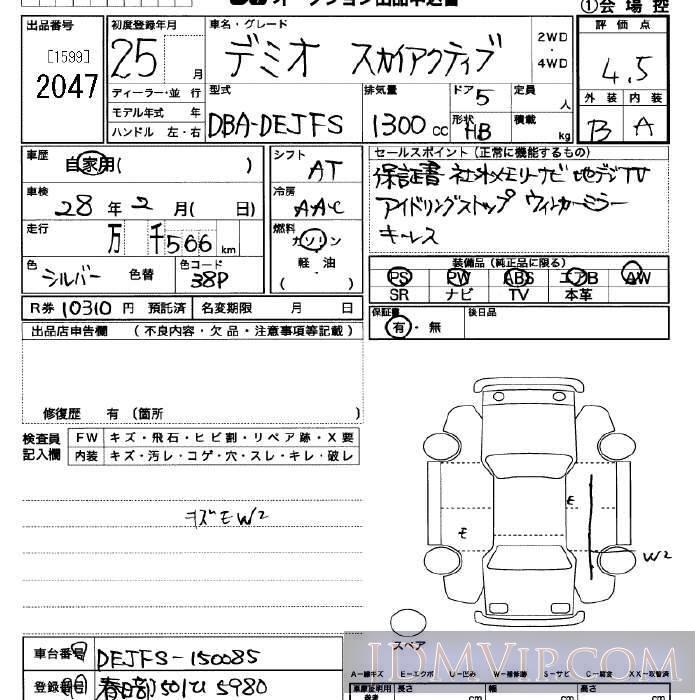 ①会場控
出品番号
[1599]
2047
初度登録年月
25 月
ディーラー・並行
モデル年式 年
ハンドル 左・右
車名・グレード
デミオ スカイアクティブ
2WD
・
4WD
型式
DBA-DEJFS
排気量
1300 cc
ドア
5
形状
HB
定員
人
積載
kg
評価点
4.5
外装 内装
B A
車歴
自家用( )
車検
28年2月( 日)
走行
万 千566 km
色
シルバー 色替
色コード
38P
シフト
AT
冷房
AAC
燃料
ガソリン
軽油
( )
セールスポイント(正常に機能するもの)
保証書 社外メモリーナビ 地デジTV
アイドリングストップ ウィンカーミラー
キーレス
装備品(純正品に限る)
PS PW ABS エアB AW
SR ナビ TV 本革
R券 10310 円 預託済 名変期限 月 日
保証書
有・無
後日品
出品店申告欄 (不良内容・欠品・注意事項等記載)
修復歴 有 (箇所
検査員
記入欄
FW キズ・飛石・ヒビ割・リペア跡・X要
内装 キズ・汚レ・コゲ・穴・スレ・キレ・破レ
キズEW2
E
E
W2
スペア
車台番号 DEJFS-150085
登録番号 春日部501 5980
A-線キズ E-エクボ U-凹み W-補修跡 S-サビ C-腐食 XX-取替済
車庫証明用 長さ 幅 高さ
参考 cm cm cm
JDMVIP.COM